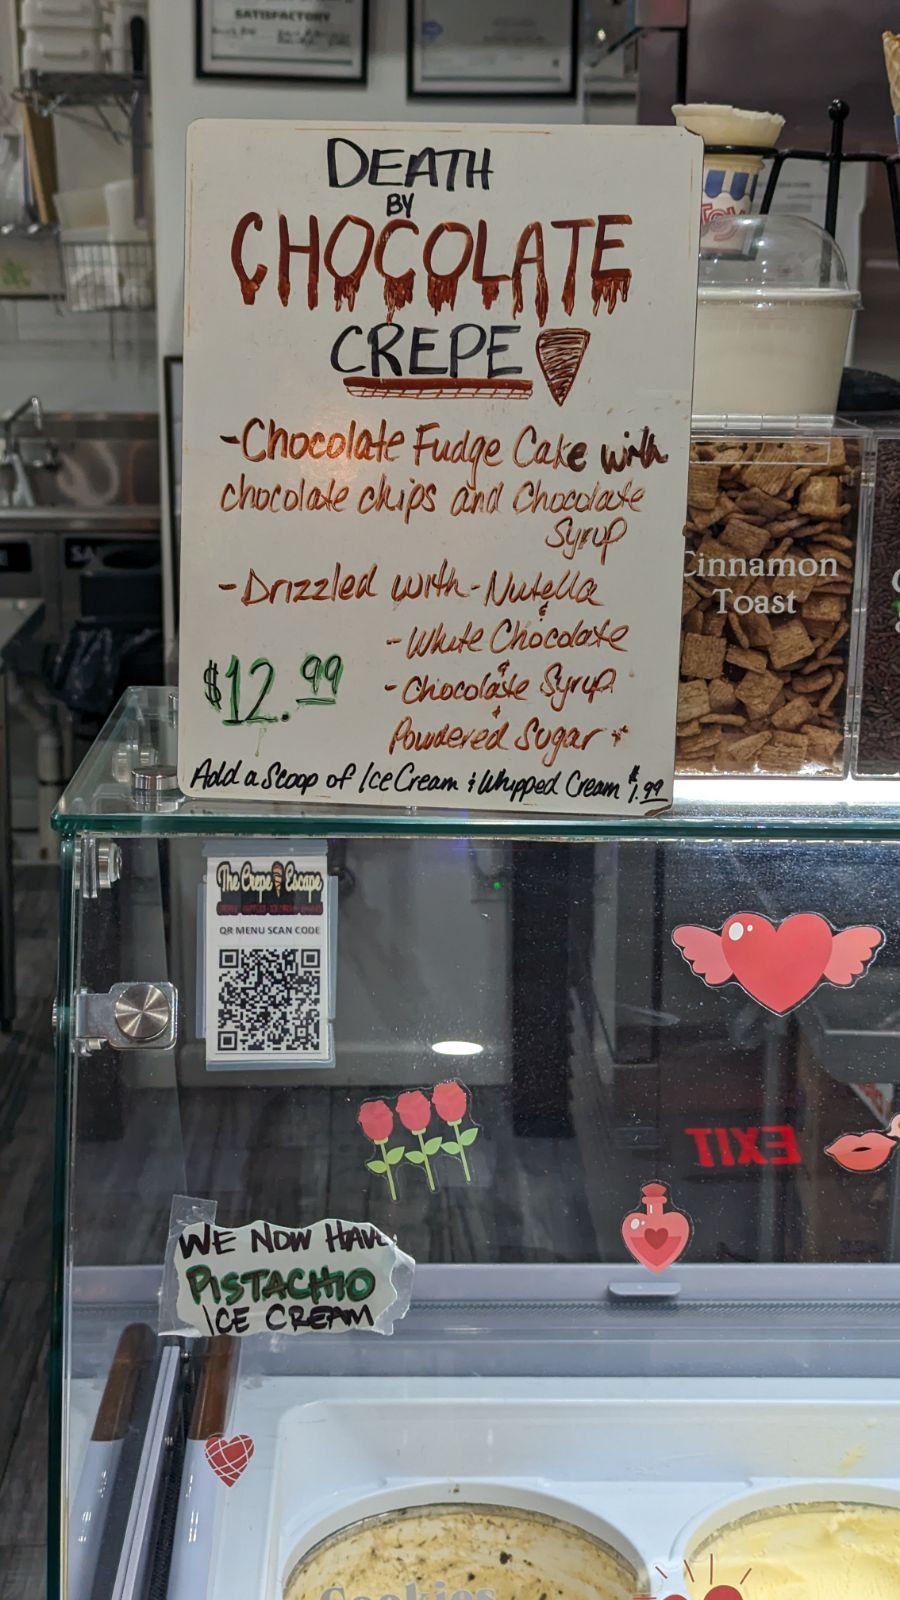 SATISFACTORY
DEATH
BY
CHOCOLATE
CREPE
-Chocolate Fudge Cake with
chocolate chips and Chocolate
Syrup
-Drizzled with-Nutella
&
-White Chocolate
&
-Chocolate Syrup
&
Powdered Sugar *
$12.99
Add a Scoop of Ice Cream & Whipped Cream $1.99
Cinnamon
Toast
The Crepe Escape
QR MENU SCAN CODE
EXIT
WE NOW HAVE
PISTACHIO
ICE CREAM
Cookies